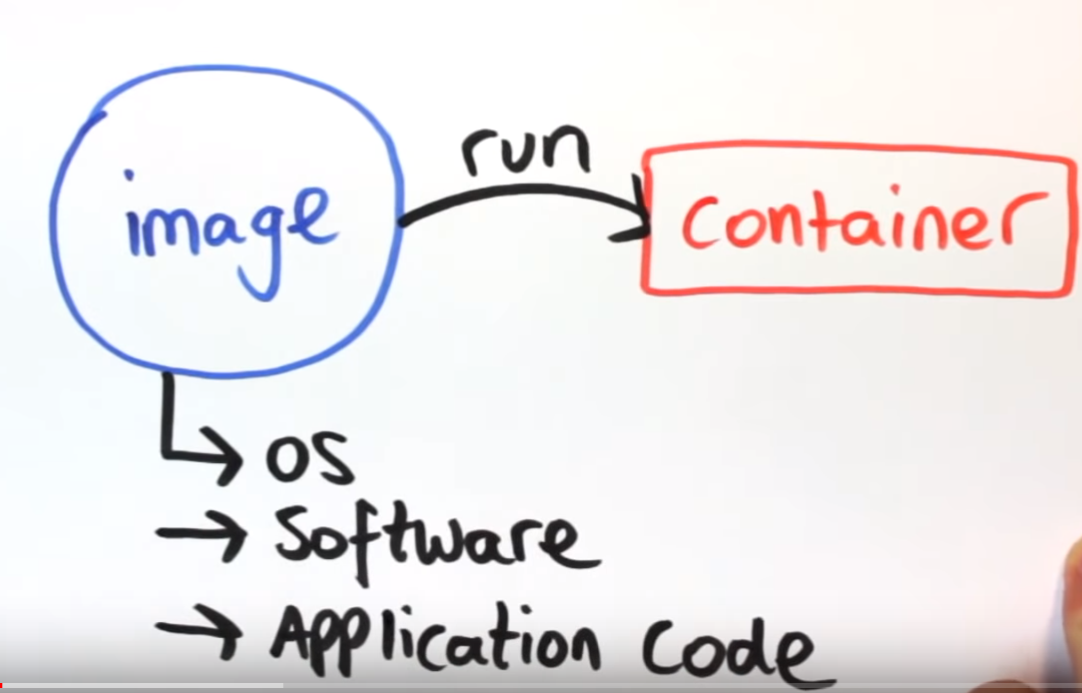 image
run
container
OS
Software
Application Code